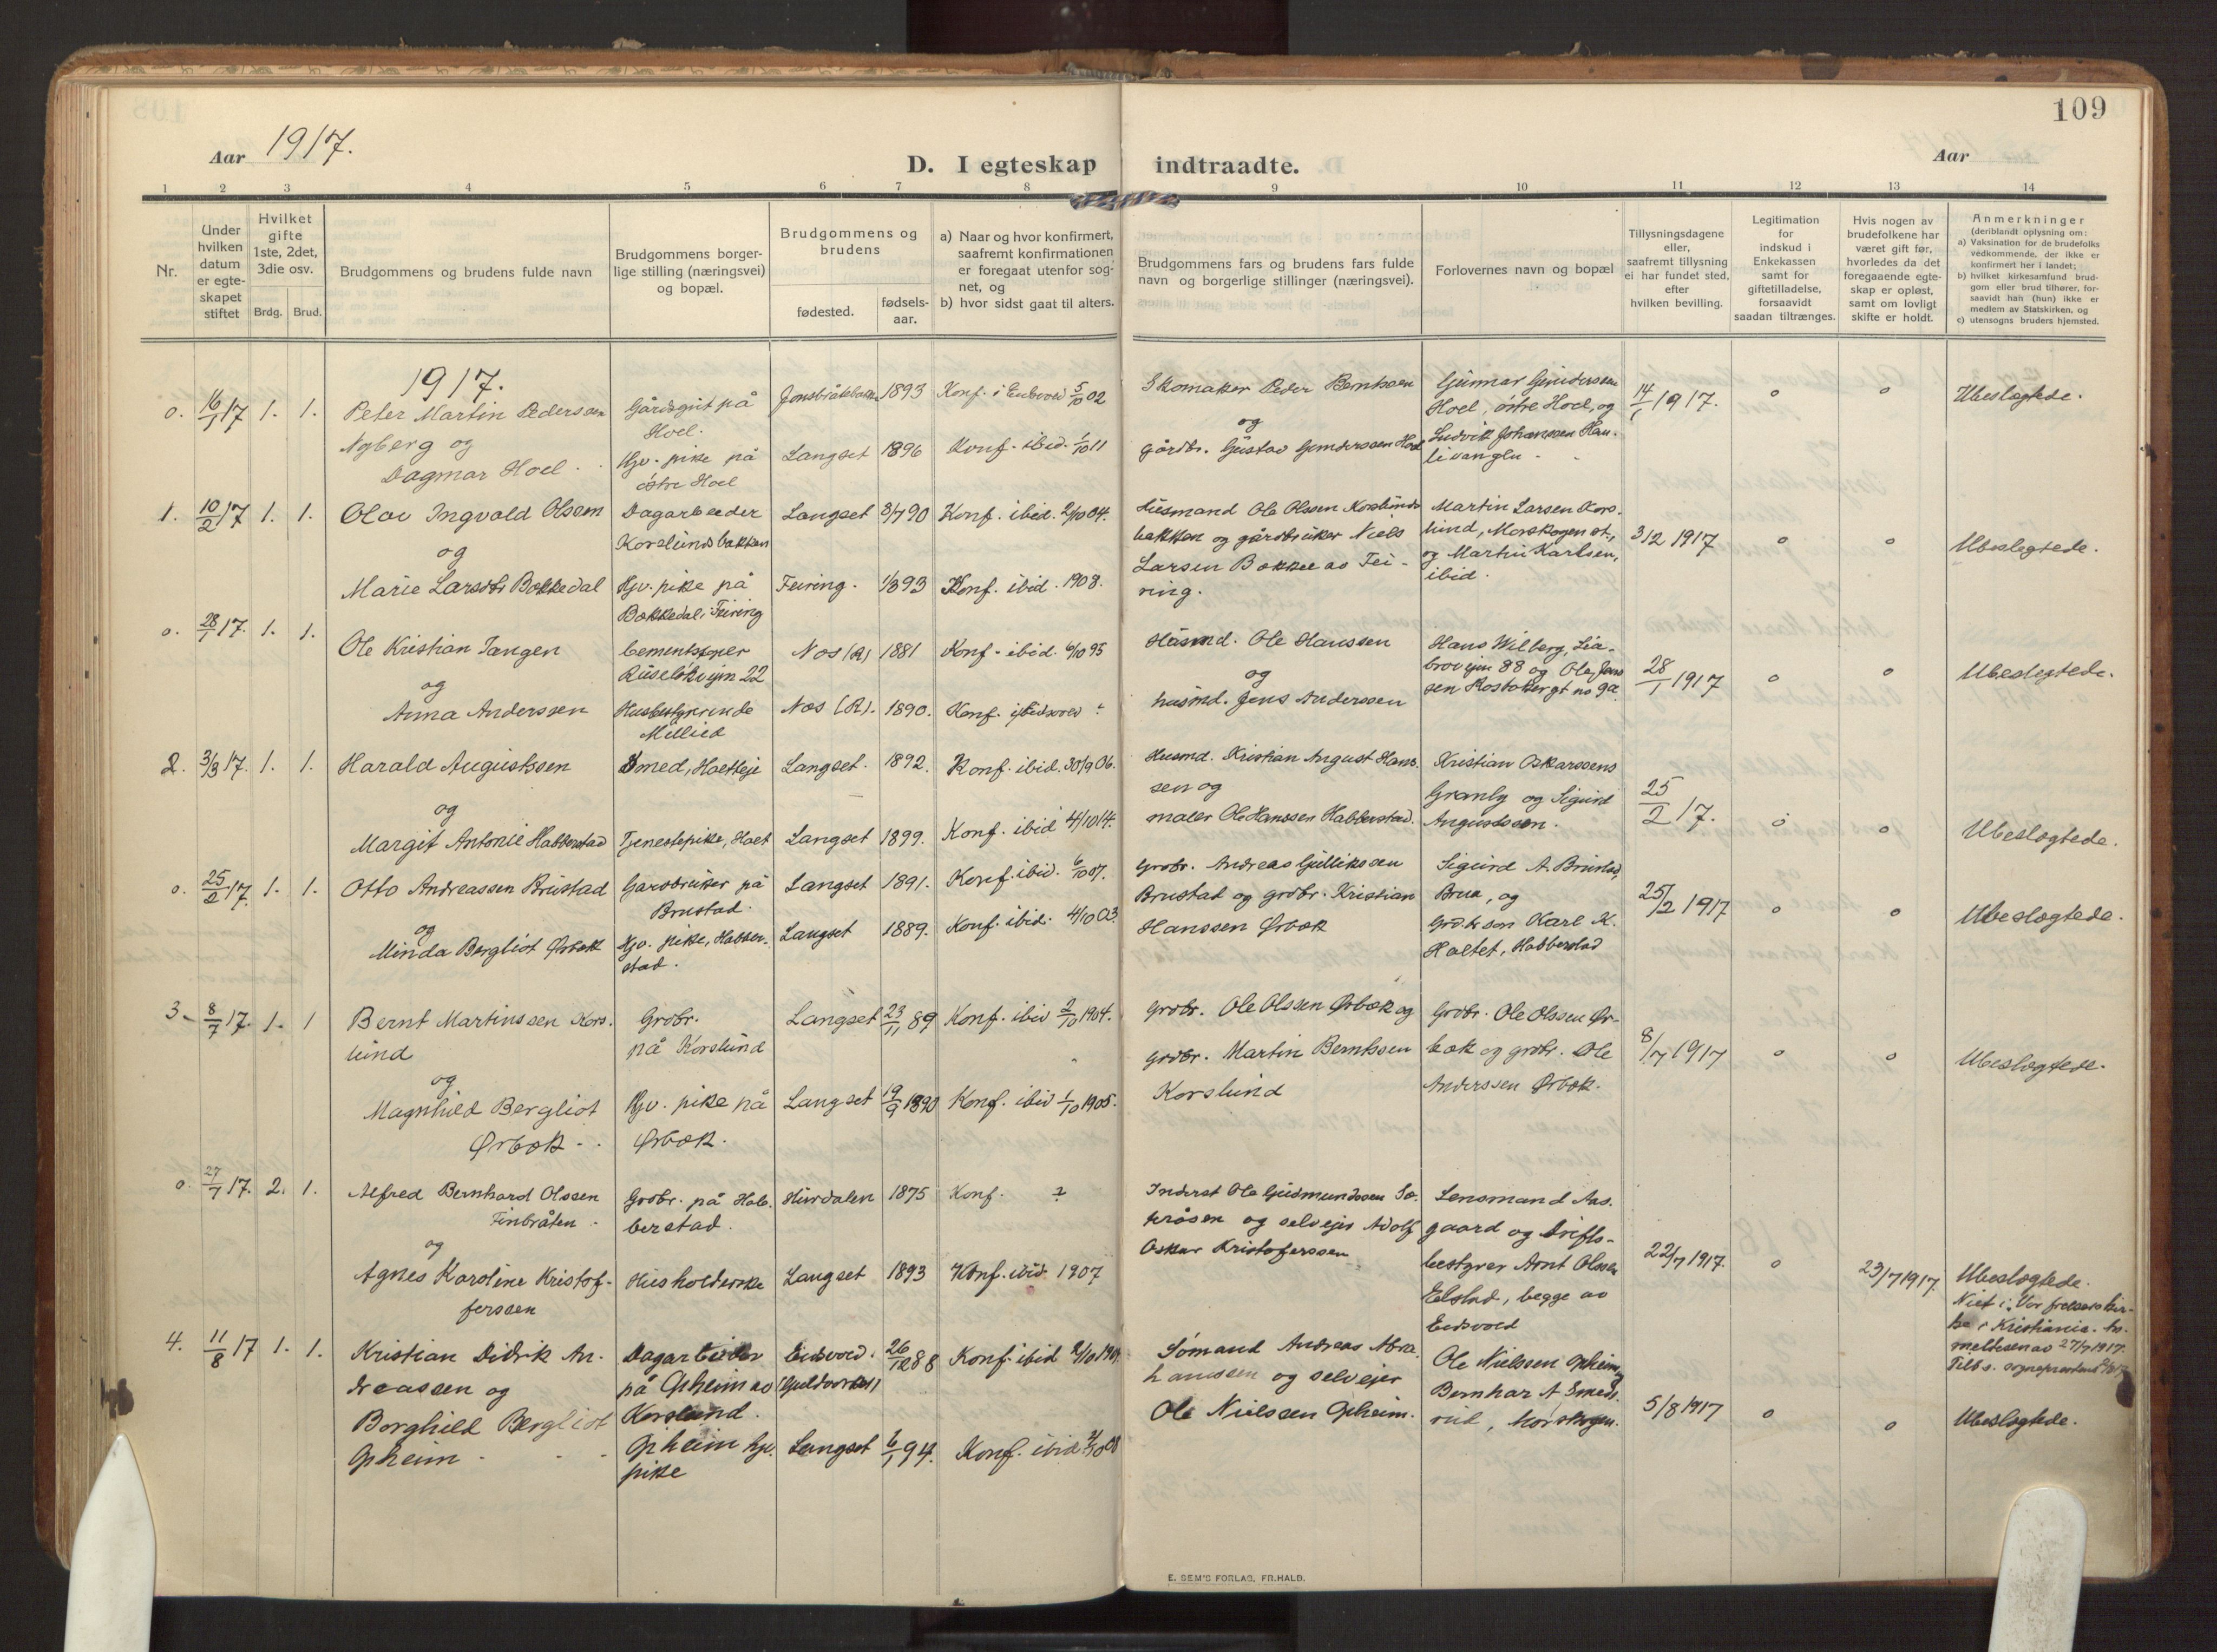 109
Aar 1917.
D. I egteskap indtraadte.
Aar
1 2 3 4 5 6 7 8 9 10 11 12 13 14
Nr.
Under
hvilken
datum
er egte-
skapet
stiftet
Hvilket
gifte
1ste, 2det,
3die osv.
Brdg. Brud.
Brudgommens og brudens fulde navn
Brudgommens borger-
lige stilling (næringsvei)
og bopæl.
Brudgommens og
brudens
fødested.
fødsels-
aar.
a) Naar og hvor konfirmert,
saafremt konfirmationen
er foregaat utenfor sog-
net, og
b) hvor sidst gaat til alters.
Brudgommens fars og brudens fars fulde
navn og borgerlige stillinger (næringsvei).
Forlovernes navn og bopæl
Tillysningsdagene
eller,
saafremt tillysning
ei har fundet sted,
efter
hvilken bevilling.
Legitimation
for
indskud i
Enkekassen
samt for
giftetilladelse,
forsaavidt
saadan tiltrænges.
Hvis nogen av
brudefolkene har
været gift før,
hvorledes da det
foregaaende egte-
skap er opløst,
samt om lovligt
skifte er holdt.
Anmerkninger
(deriblandt oplysning om:
a) Vaksination for de brudefolks
vedkommende, der ikke er
konfirmert her i landet;
b) hvilket kirkesamfund brud-
gom eller brud tilhører, for-
saavidt han (hun) ikke er
medlem av Statskirken, og
c) utensogns bruders hjemsted.
1917.
o. 16/1 17 1. 1.
Peter Martin Pederssen
Nyberg og
Dagmar Hoel.
Gårdsgut på
Hoel.
Hjv. pike på
østre Hoel
1893
Langset 1896
Konf. i Eidsvold 5/10 02
Konf. ibid. 1/10 11
Skomaker Peder Berntssen
og
gårdbr. Gustav Gunderssen Hoel
Gunnar Gunderssen
Hoel, østre Hoel, og
Ludvik Johanssen
14/1 1917.
o
o
Ubeslægtede.
1. 10/2 17 1. 1.
Olav Ingvald Olssen
og
Marie Larsdtr Bækkedal
Dagarbeider
Korslundsbakken
Hjv. pike på
Bækkedal i Feiring
Langset 8/7 90
Feiring. 1/8 93
Konf. ibid. 2/10 04.
Konf. ibid. 1908.
Husmand Ole Olssen Korslunds
bakken og gårdbruker Niels
Larsen Bækkedal av Fei-
ring.
Martin Larsen Kors-
lund, Morskogen st.,
og Martin Karlsen,
ibid.
3/2 1917
o
o
Ubeslegtede.
o. 28/1 17. 1. 1.
Ole Kristian Tangen
og
Anna Anderssen
Cementstøper
Ruseløkvejen 22
Husbestyrerinde
Nes (R) 1881
Nes (R). 1890.
Konf. ibid. 6/10 95
Konf. i Eidsvold ?
Husmd. Ole Hanssen
og
husmd. Jens Anderssen
Hans Wilberg, Lia-
brovejen 88 og Ole Jens
sen
28/1 1917
o
o
Ubeslegtede.
2. 3/3 17. 1. 1.
Harald Augustssen
og
Margit Antonie Habberstad
Smed, Hoelteje
Tjenestepike, Hoel
Langset. 1892.
Langset 1899.
Konf. ibid. 30/9 06.
Konf. ibid 4/10 14.
Husmd. Kristian August Hans-
sen og
maler Ole Hanssen Habberstad.
Kristian Oskarssens
Granly og Sigurd
Augustssen.
25/2 17.
o
o
Ubeslægtede.
o. 25/2 17. 1. 1.
Otto Andreassen Brustad
og
Minda Bergliot Ørbæk
Gårdbruker på
Brustad.
Hjv. pike, Habber-
stad.
Langset 1891.
Langset 1889.
Konf. ibid. 6/10 07.
Konf. ibid. 4/10 03.
Grdbr. Andreas Gullikssen
Brustad og grdbr. Kristian
Hanssen Ørbæk
Sigurd A. Brustad,
Brua, og
Grdbr. søn Karl K.
Haltet, Habberstad
25/2 1917
o
o
Ubeslægtede.
3. 8/7 17. 1. 1
Bernt Martinssen Kors-
lund
og
Magnhild Bergliot
Ørbæk
Grdbr.
på Korslund
Hjv. pike på
Ørbæk.
Langset 23/11 89
Langset 19/9 1890
Konf. ibid 2/10 1904.
Konf. ibid 1/10 1905.
Grdbr. Ole Olssen Ørbæk og
grdbr. Martin Berntssen
Korslund
Grdbr. Ole Olssen Ør-
bæk og grdbr. Ole
Anderssen Ørbæk.
8/7 1917
o
o
Ubeslægtede.
o. 27/7 17. 2. 1.
Alfred Bernhard Olssen
Finbråten
og
Agnes Karoline Kristof-
ferssen
Grdbr. på Hab-
berstad.
Husholderske
Hurdalen 1875
Langset 1893
Konf. ?
Konf. ibid. 1907
Inderst Ole Gudmundssen
og selvejer Adolf
Oskar Kristoferssen
Lensmand Aas-
gaard og Drifts-
bestyrer Arnt Olssen
Eelstad, begge av
Eidsvold
22/7 1917.
o
23/7 1917.
Ubeslægtede.
Viet i Vor frelsers kir-
ke i Kristiania.
meldesen av 27/7 1917.
4. 11/8 17 1. 1.
Kristian Didrik An-
dreassen og
Borghild Bergliot
Opheim
Dagarbeider
på Opheim av
Korslund.
Opheim hjv.
pike
Eidsvold. 26/12 88
(Guldverket)
Langset 6/1 94.
Konf. ibid 2/10 1904.
Konf. ibid 4/10 08
Sømand Andreas Abra-
hamssen og selvejer
Ole Nielssen Opheim.
Ole Nielssen Opheim,
Bernhar A. Smeds-
rud, Morskogen.
5/8 1917
o
o
Ubeslægtede.
E. SEM'S FORLAG, FR.HALD.